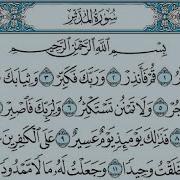 سُورَةُ المُدَّثِّرِ
بِسْمِ اللَّهِ الرَّحْمَٰنِ الرَّحِيمِ
قُمْ فَأَنذِرْ ٢ وَرَبَّكَ فَكَبِّرْ ٣ وَثِيَابَكَ
وَلَا تَمْنُن تَسْتَكْثِرُ ٦ وَلِرَبِّكَ فَاصْبِرْ
فَذَٰلِكَ يَوْمَئِذٍ يَوْمٌ عَسِيرٌ ٩ عَلَى الْكَٰفِرِينَ
خَلَقْتُ وَحِيدًا ١١ وَجَعَلْتُ لَهُۥ مَالًا مَّمْدُودًا